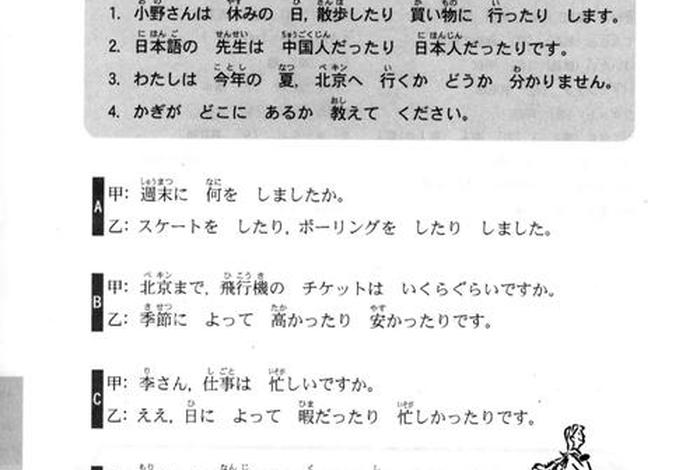 1. 小野さんは 休みの 日，散歩したり 買い物に 行ったり します。
2. 日本語の 先生は 中国人だったり 日本人だったりです。
3. わたしは 今年の 夏，北京へ 行くか どうか 分かりません。
4. かぎが どこに あるか 教えて ください。
A
甲：週末に 何を しましたか。
乙：スケートを したり，ボーリングを したり しました。
B
甲：北京まで，飛行機の チケットは いくらぐらいですか。
乙：季節に よって 高かったり 安かったりです。
C
甲：李さん，仕事は 忙しいですか。
乙：ええ，日に よって 暇だったり 忙しかったりです。